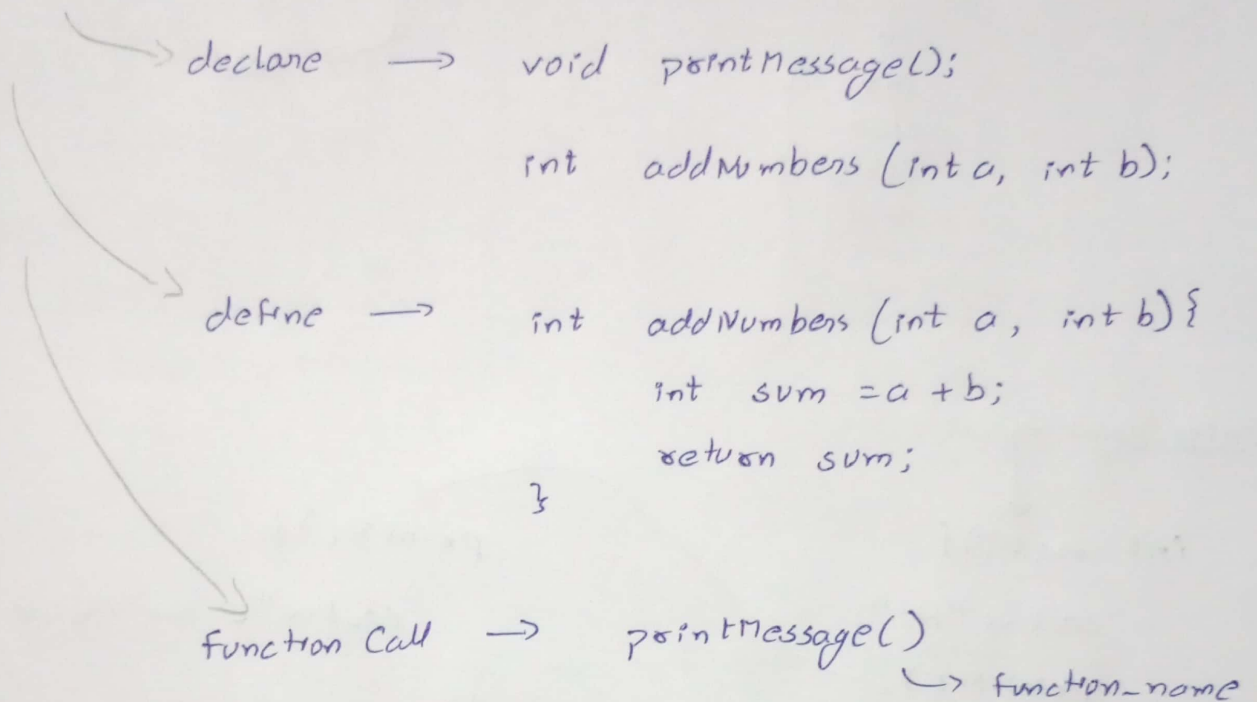 declare → void printMessage();
int addNumbers (int a, int b);
define → int addNumbers (int a, int b) {
int sum = a + b;
return sum;
}
function Call → printMessage()
↳ function_name